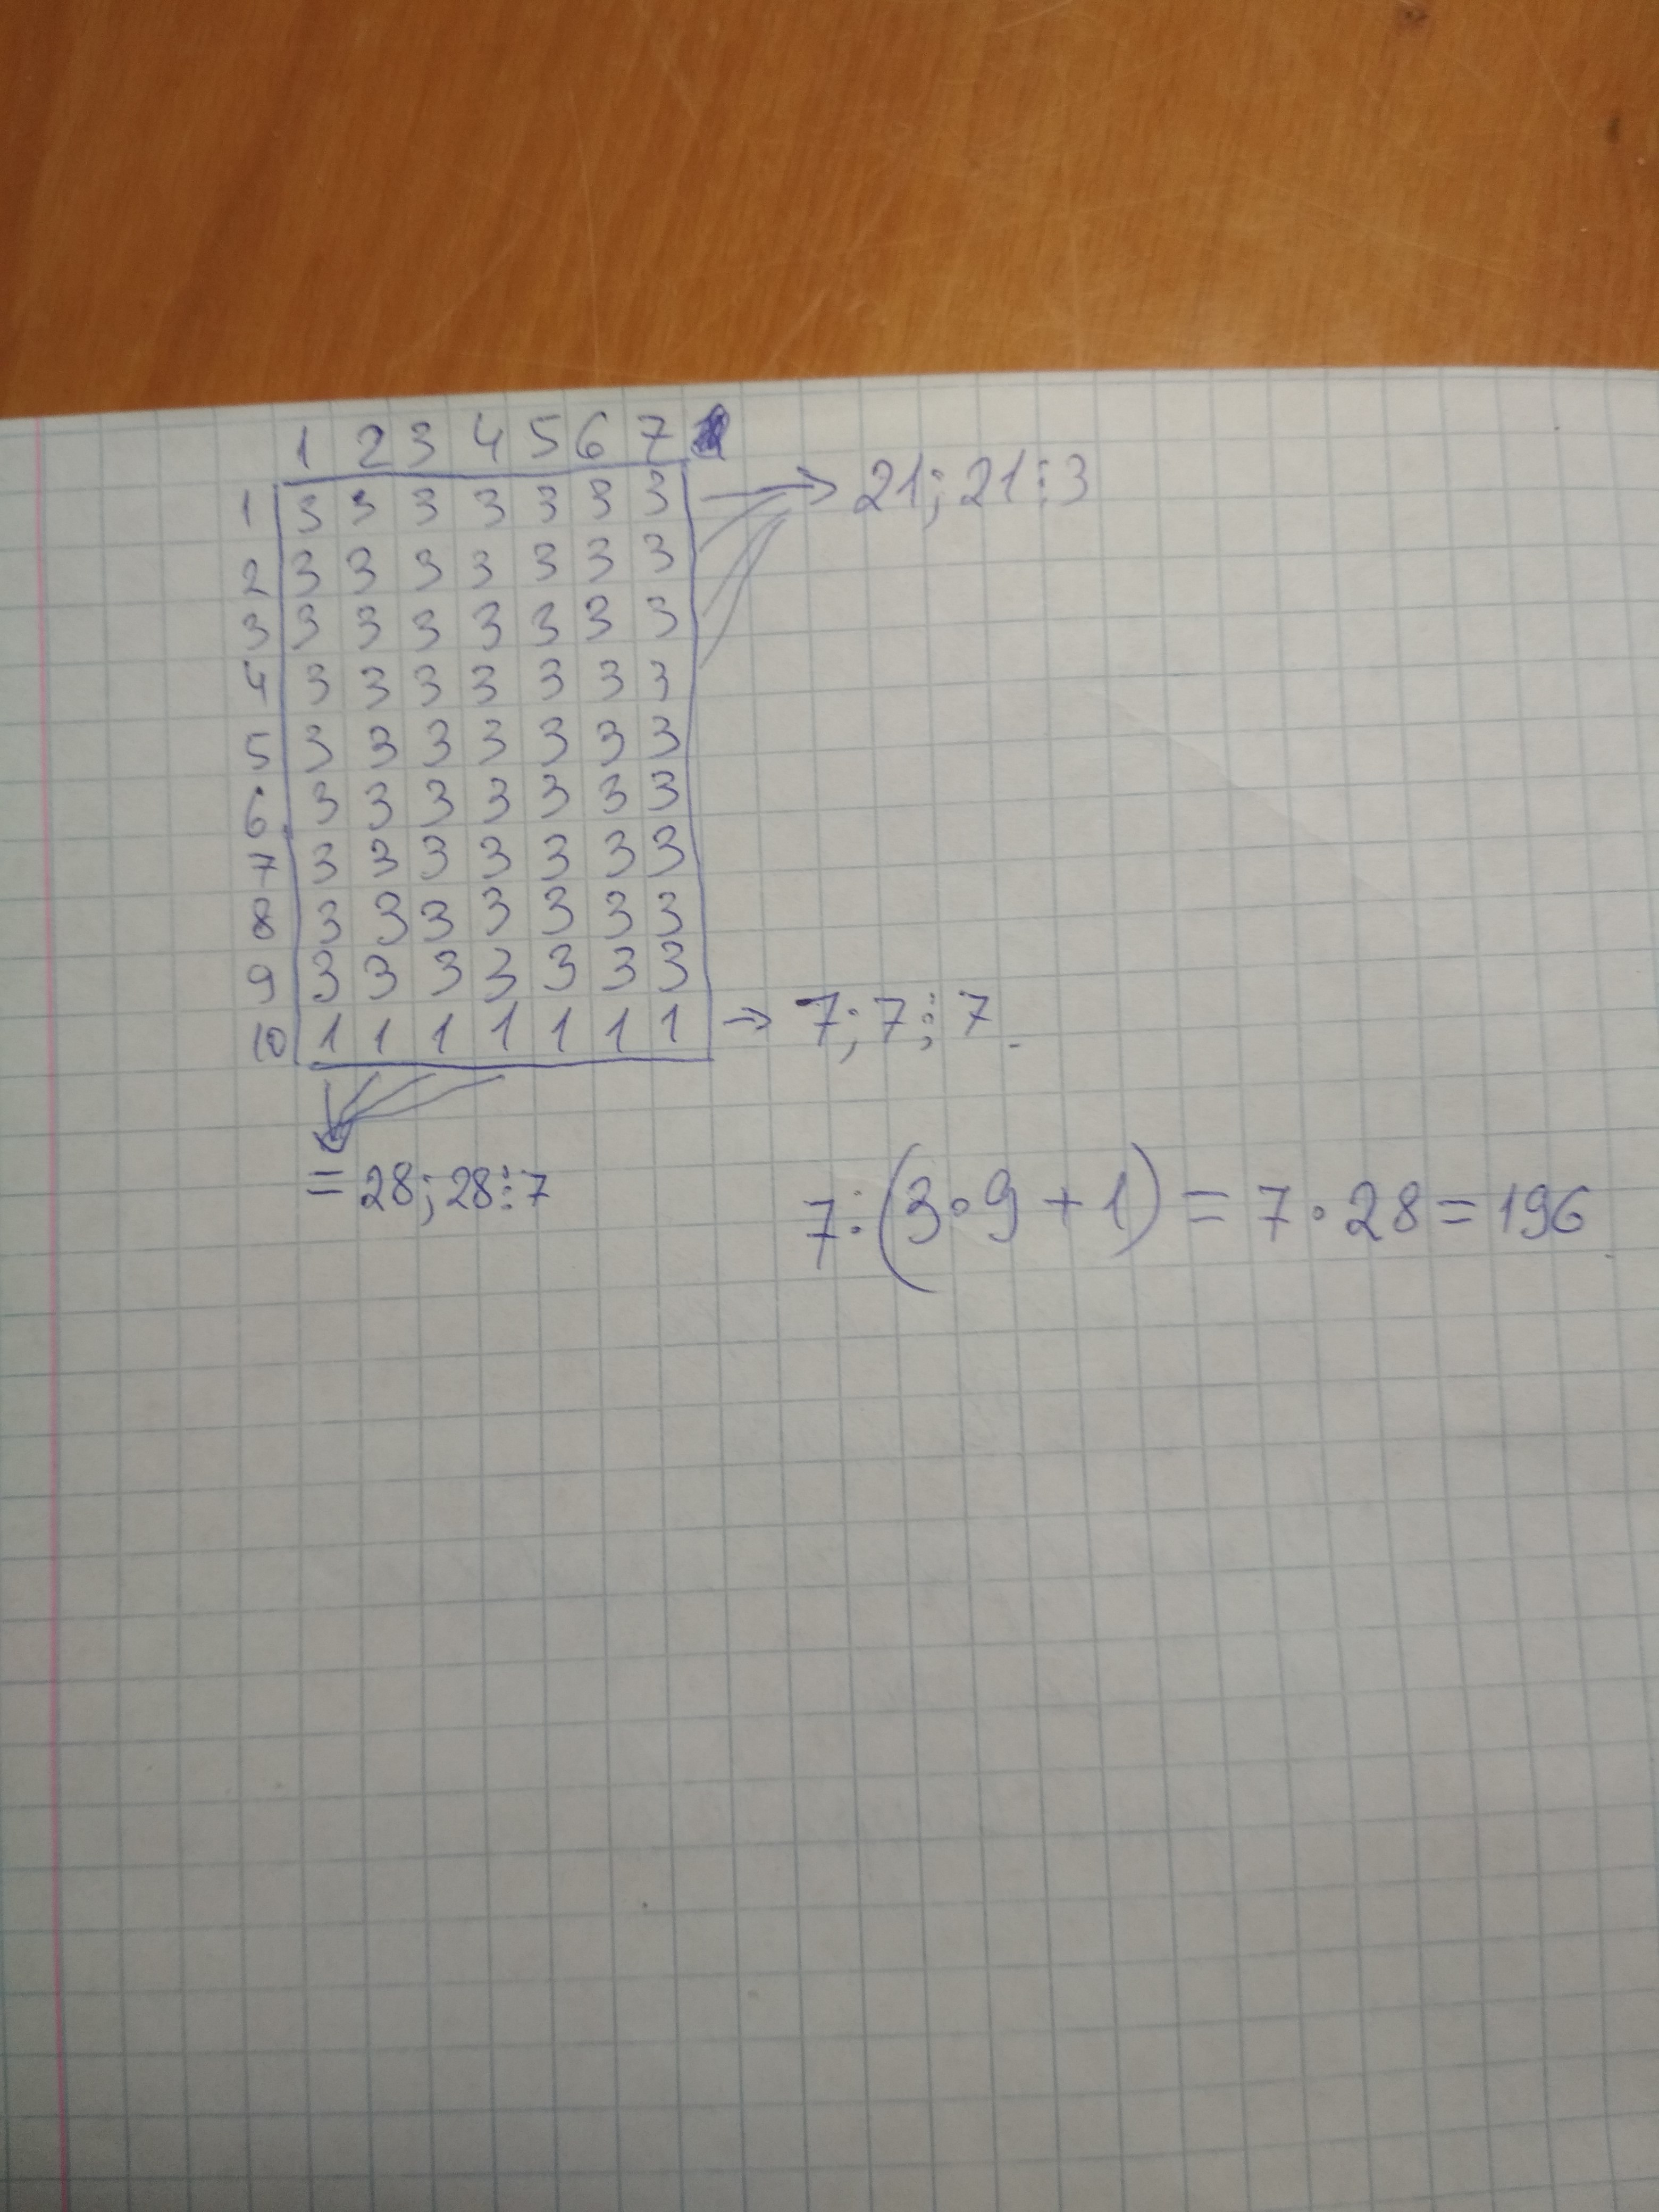 1 2 3 4 5 6 7
1 3 3 3 3 3 3 3 → 21; 21⋮3
2 3 3 3 3 3 3 3
3 3 3 3 3 3 3 3
4 3 3 3 3 3 3 3
5 3 3 3 3 3 3 3
6 3 3 3 3 3 3 3
7 3 3 3 3 3 3 3
8 3 3 3 3 3 3 3
9 3 3 3 3 3 3 3
10 1 1 1 1 1 1 1 → 7; 7⋮7
= 28; 28⋮7
7·(3·9+1) = 7·28 = 196